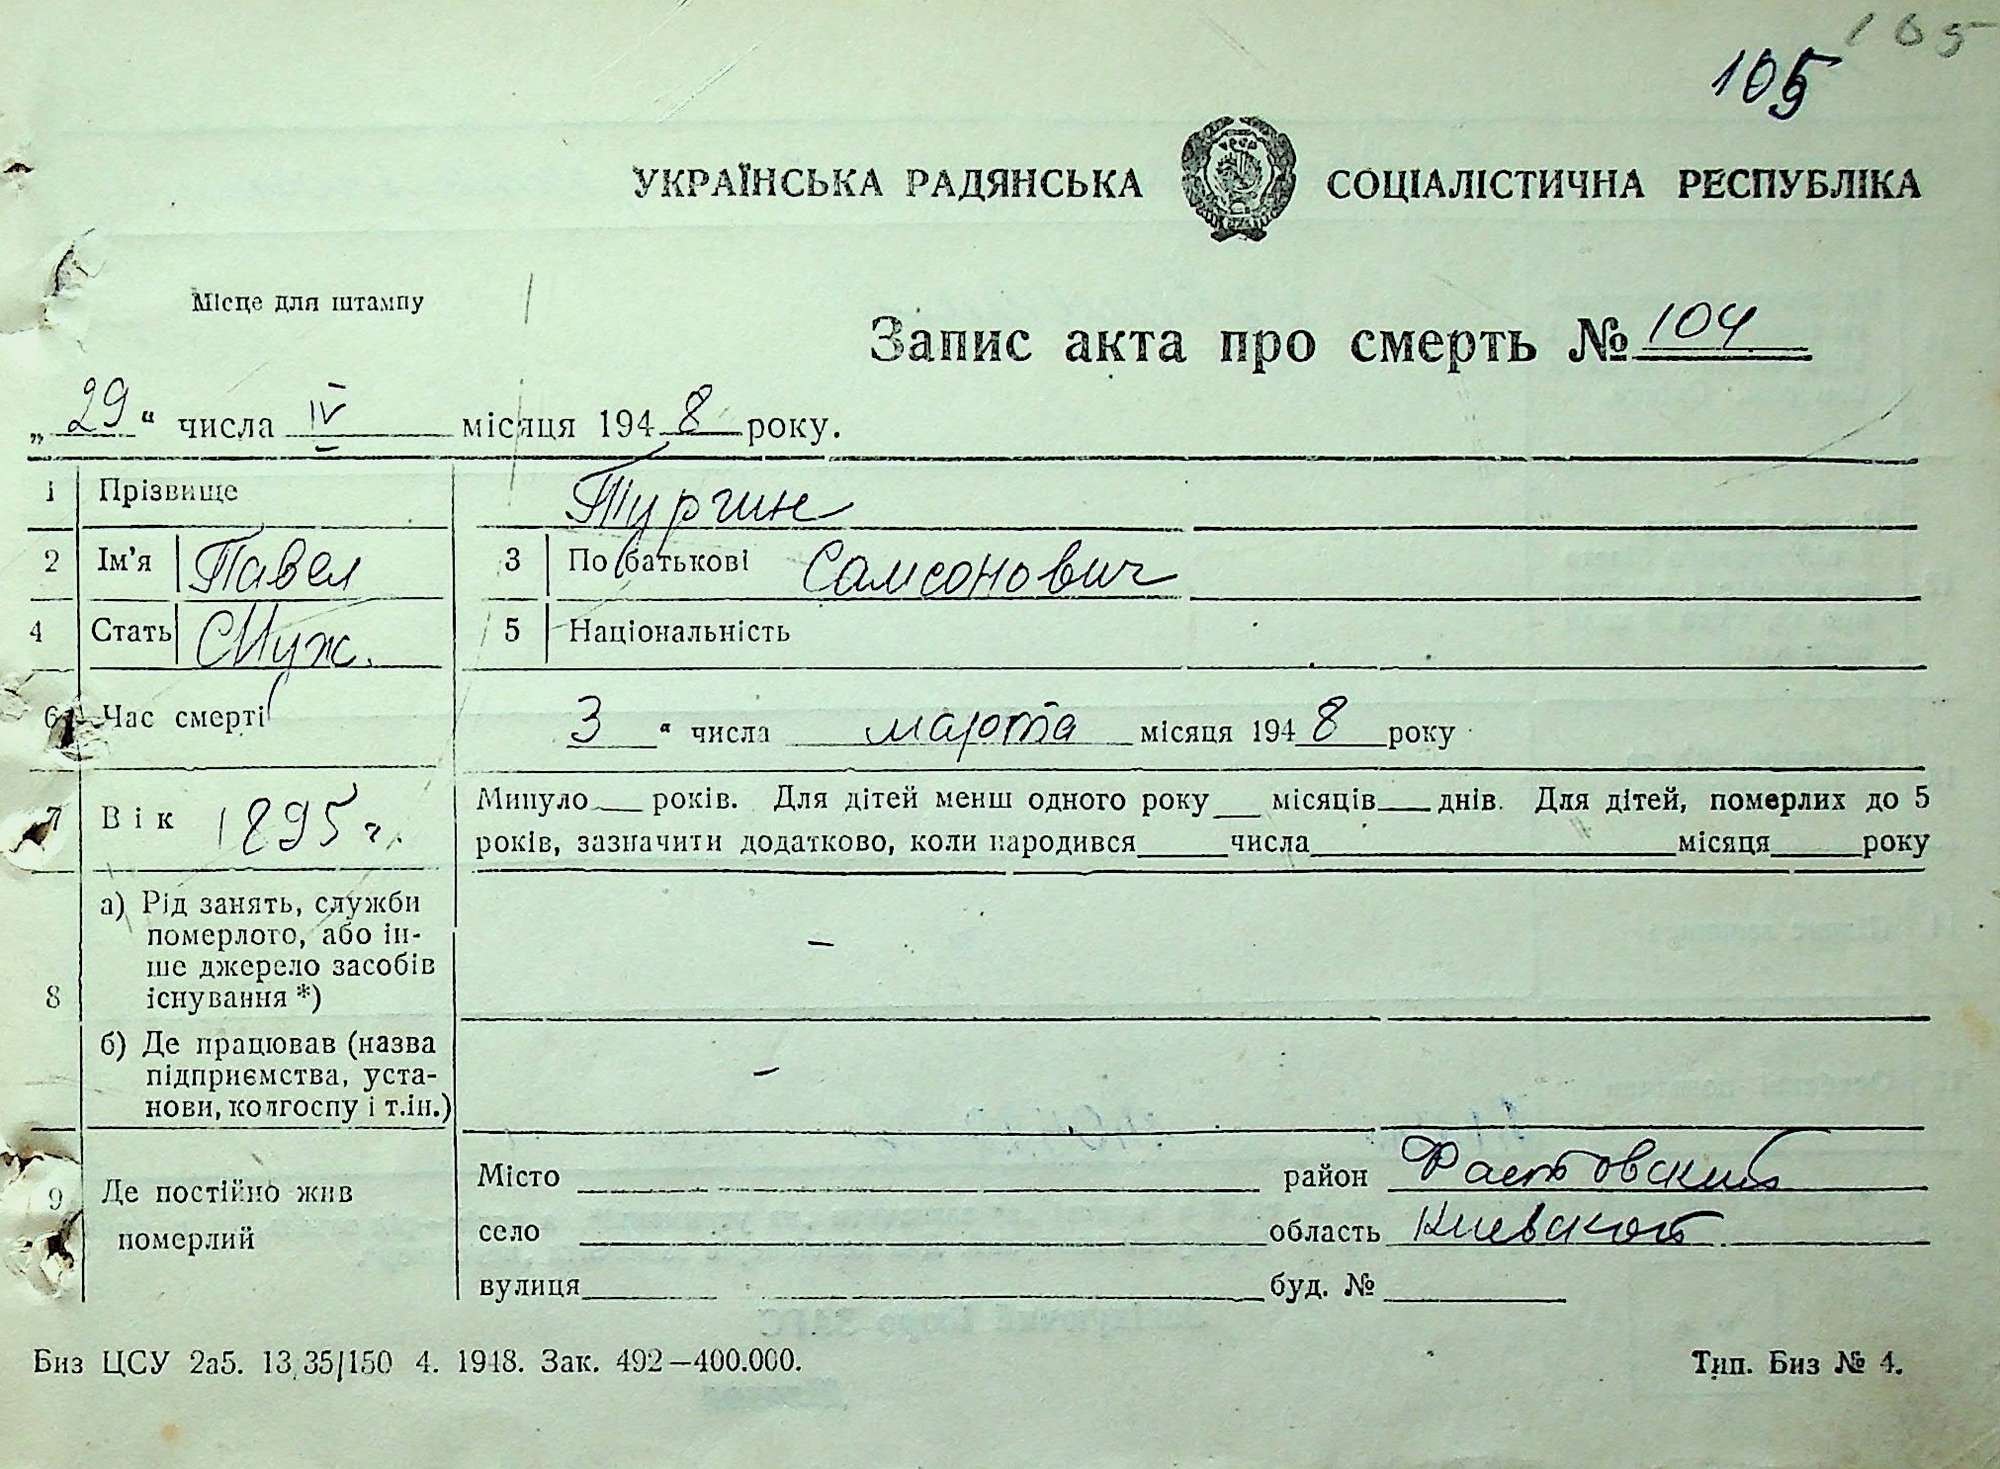 165
105
УКРАЇНСЬКА РАДЯНСЬКА СОЦІАЛІСТИЧНА РЕСПУБЛІКА
УРСР
Місце для штампу
Запис акта про смерть № 104
„29“ числа IV місяця 1948 року.
1 Прізвище Тургин
2 Ім'я Павел 3 По батькові Самсонович
4 Стать Муж. 5 Національність
6 Час смерті 3 “ числа марта місяця 1948 року
7 Вік 1895 г. Минуло __ років. Для дітей менш одного року __ місяців __ днів. Для дітей, померлих до 5
років, зазначити додатково, коли народився ____ числа ____ місяця ____ року
8 а) Рід занять, служби
померлого, або ін-
ше джерело засобів
існування *) –
б) Де працював (назва
підприємства, уста-
нови, колгоспу і т.ін.) –
9 Де постійно жив
померлий
Місто ____ район Фастовский
село ____ область Киевской
вулиця ____ буд. № ____
Биз ЦСУ 2а5. 13,35/150 4. 1948. Зак. 492—400.000. Тип. Биз № 4.